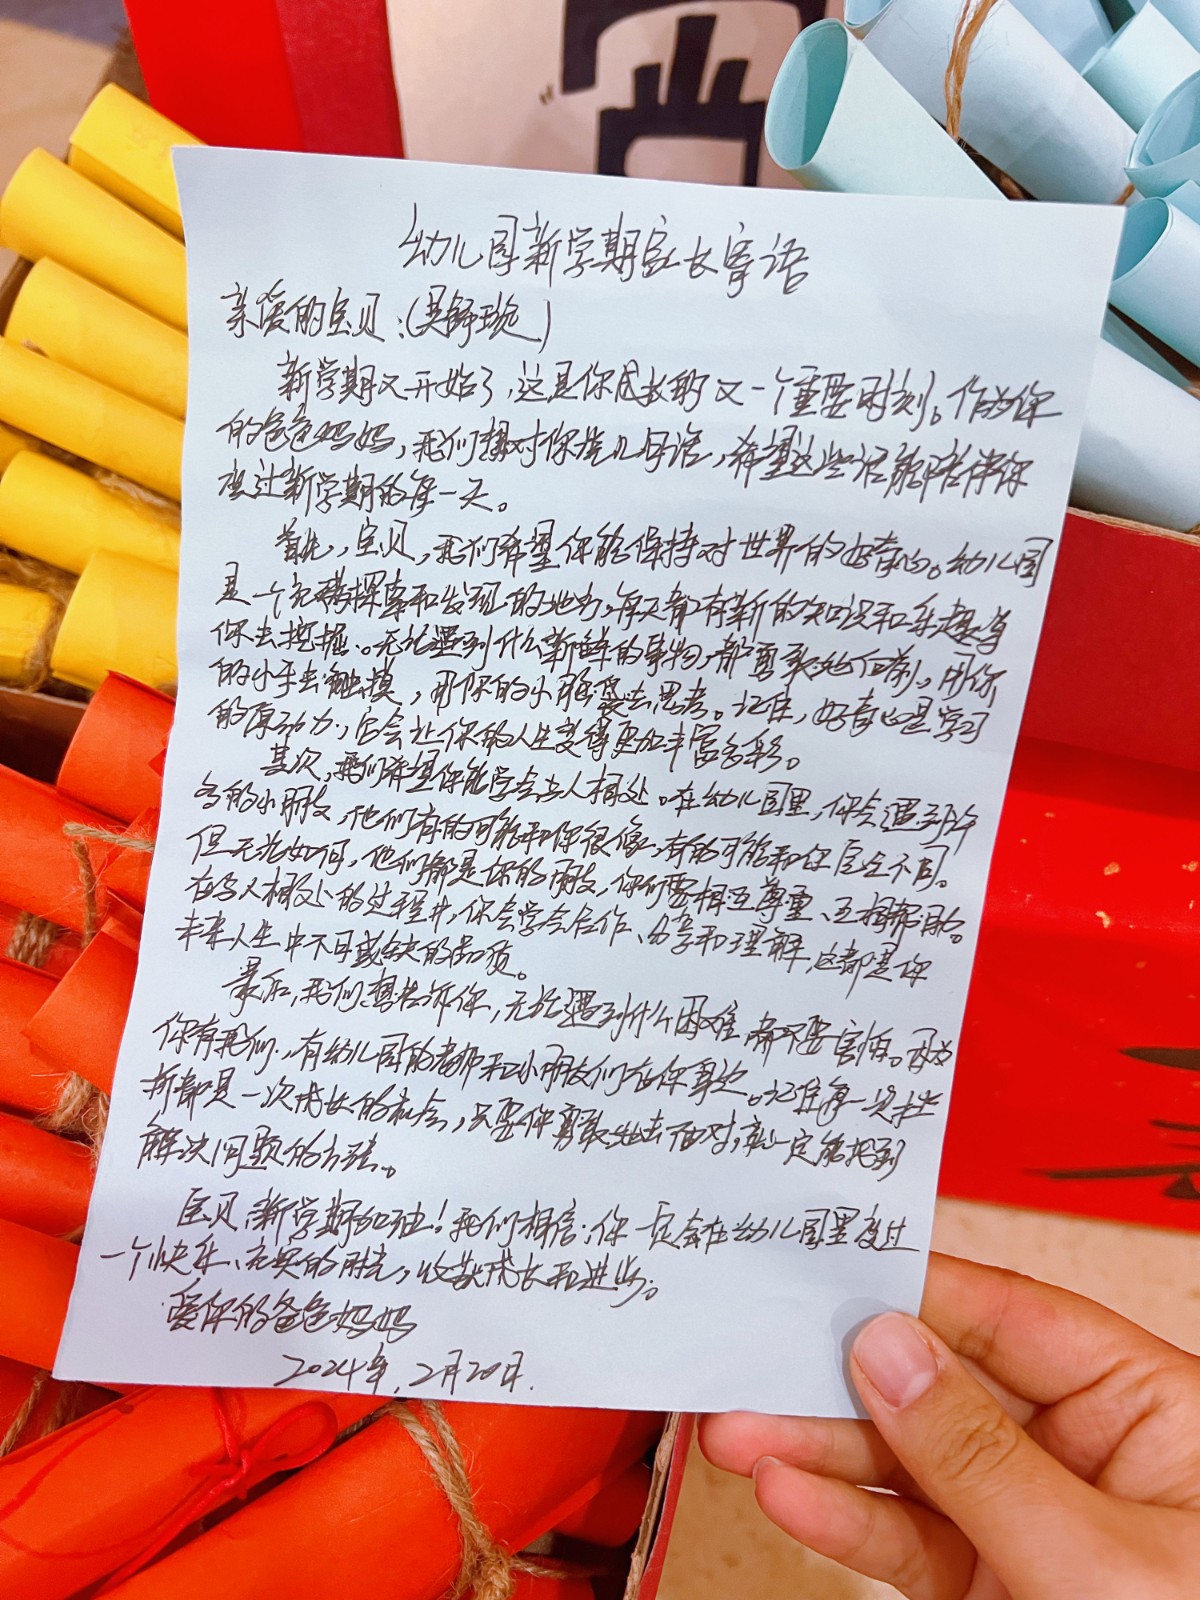 幼儿园新学期家长寄语
亲爱的宝贝:(吴舒琬)
新学期又开始了,这是你成长的又一个重要时刻。作为你
的爸爸妈妈,我们想对你说几句话,希望这些话能陪伴你
度过新学期的每一天。
首先,宝贝,我们希望你能保持对世界的好奇心。幼儿园
是一个充满探索和发现的地方,每天都有新的知识和乐趣等
你去挖掘。无论遇到什么新鲜的事物,都要勇敢地向前,用你
的小手去触摸,用你的小脑袋去思考。记住,好奇心是学习
的原动力,它会让你的人生变得更加丰富多彩。
其次,我们希望你能学会与人相处。在幼儿园里,你会遇到许
多的小朋友,他们有的可能和你很像,有的可能和你完全不同。
但无论如何,他们都是你的朋友,你们要相互尊重、互相帮助。
在与人相处的过程中,你会学会合作、分享和理解,这都是你
未来人生中不可或缺的品质。
最后,我们想告诉你,无论遇到什么困难,都不要害怕。因为
你有我们,有幼儿园的老师和小朋友们在你身边。记住每一次挫
折都是一次成长的机会,只要你勇敢地去面对,就一定能找到
解决问题的方法。
宝贝,新学期加油!我们相信:你一定会在幼儿园里度过
一个快乐、充实的时光,收获成长和进步。
爱你的爸爸妈妈
2024年,2月20日.